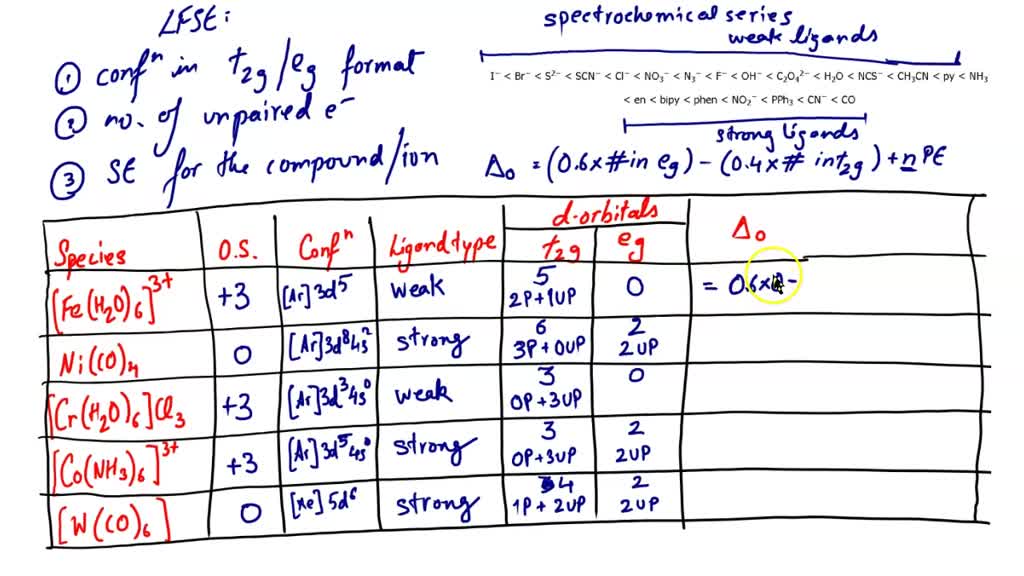 LFSE:
① confⁿ in t2g/eg format
② no. of unpaired e⁻
③ SE for the compound/ion
spectrochemical series
weak ligands
I⁻ < Br⁻ < S²⁻ < SCN⁻ < Cl⁻ < NO₃⁻ < N₃⁻ < F⁻ < OH⁻ < C₂O₄²⁻ < H₂O < NCS⁻ < CH₃CN < py < NH₃
< en < bipy < phen < NO₂⁻ < PPh₃ < CN⁻ < CO
strong ligands
Δ₀ = (0.6 x # in eg) - (0.4 x # in t2g) + n PE
d-orbitals
Species O.S. Confⁿ Ligand type t2g eg Δ₀
[Fe(H₂O)₆]³⁺ +3 [Ar]3d⁵ weak 5 2P+1UP 0 = 0.6x -
Ni(CO)₄ 0 [Ar]3d⁸4s² strong 6 3P+0UP 2 2UP
[Cr(H₂O)₆]Cl₃ +3 [Ar]3d³4s⁰ weak 3 0P+3UP 0
[Co(NH₃)₆]³⁺ +3 [Ar]3d⁵4s⁰ strong 3 0P+3UP 2 2UP
[W(CO)₆] 0 [Xe]5d⁶ strong 4 1P+2UP 2 2UP